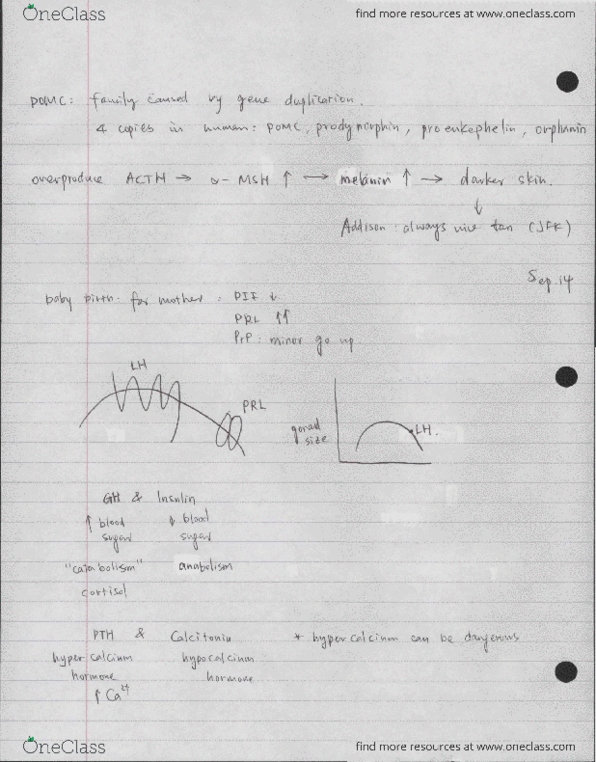 OneClass find more resources at www.oneclass.com
POMC: family caused vy gene duplication.
4 copies in human: POMC, prodynorphin, proenkephelin, orphanin
overproduce ACTH → α-MSH ↑ → melanin ↑ → darker skin.
↓
Addison: always nice tan (JFK)
Sep.14
baby birth. for mother: PIF ↓
PRL ↑↑
PrP: minor go up
LH
PRL
gonad size
LH.
GH & Insulin
↑ blood sugar ↓ blood sugar
"catabolism" anabolism
cortisol
PTH & Calcitonin * hypercalcium can be dangerous
hypercalcium hypocalcium
hormone hormone
↑ Ca²⁺
OneClass find more resources at www.oneclass.com